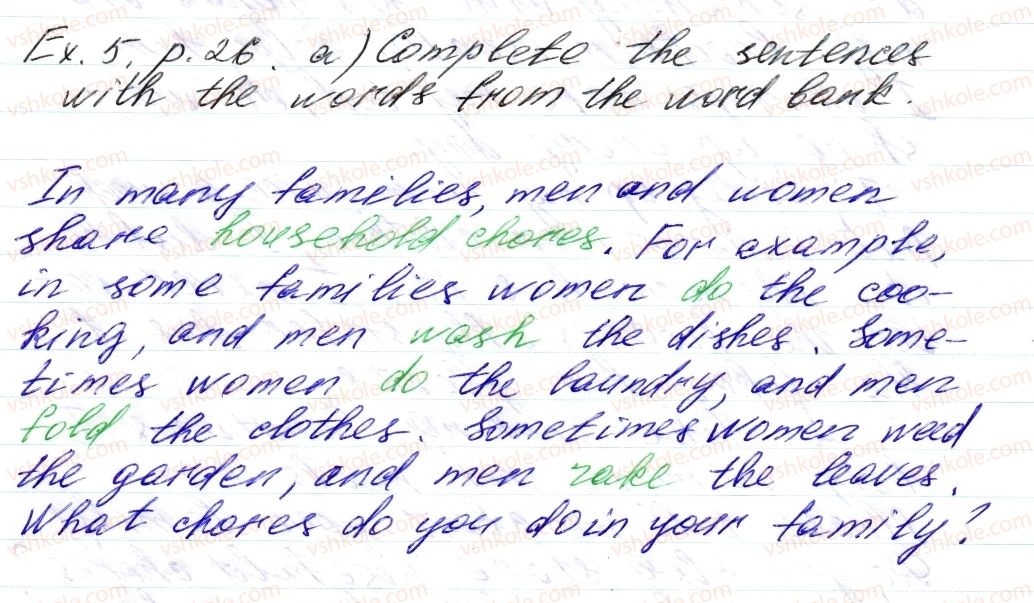 Ex. 5, p. 26. a) Complete the sentences
with the words from the word bank.
In many families, men and women
share household chores. For example,
in some families women do the coo-
king, and men wash the dishes. Some-
times women do the laundry, and men
fold the clothes. Sometimes women weed
the garden, and men rake the leaves.
What chores do you do in your family?